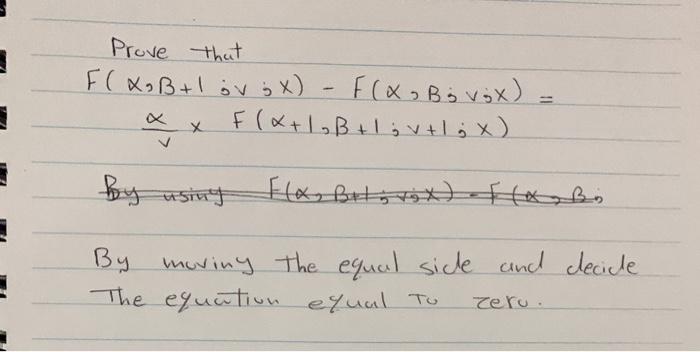 Prove that
F(α,B+1;v;x) - F(α,B;v;x) =
α/v x F(α+1,B+1;v+1;x)
By using F(α,B+1;v;x) - F(α,B;
By moving the equal side and decide
The equation equal To zero.